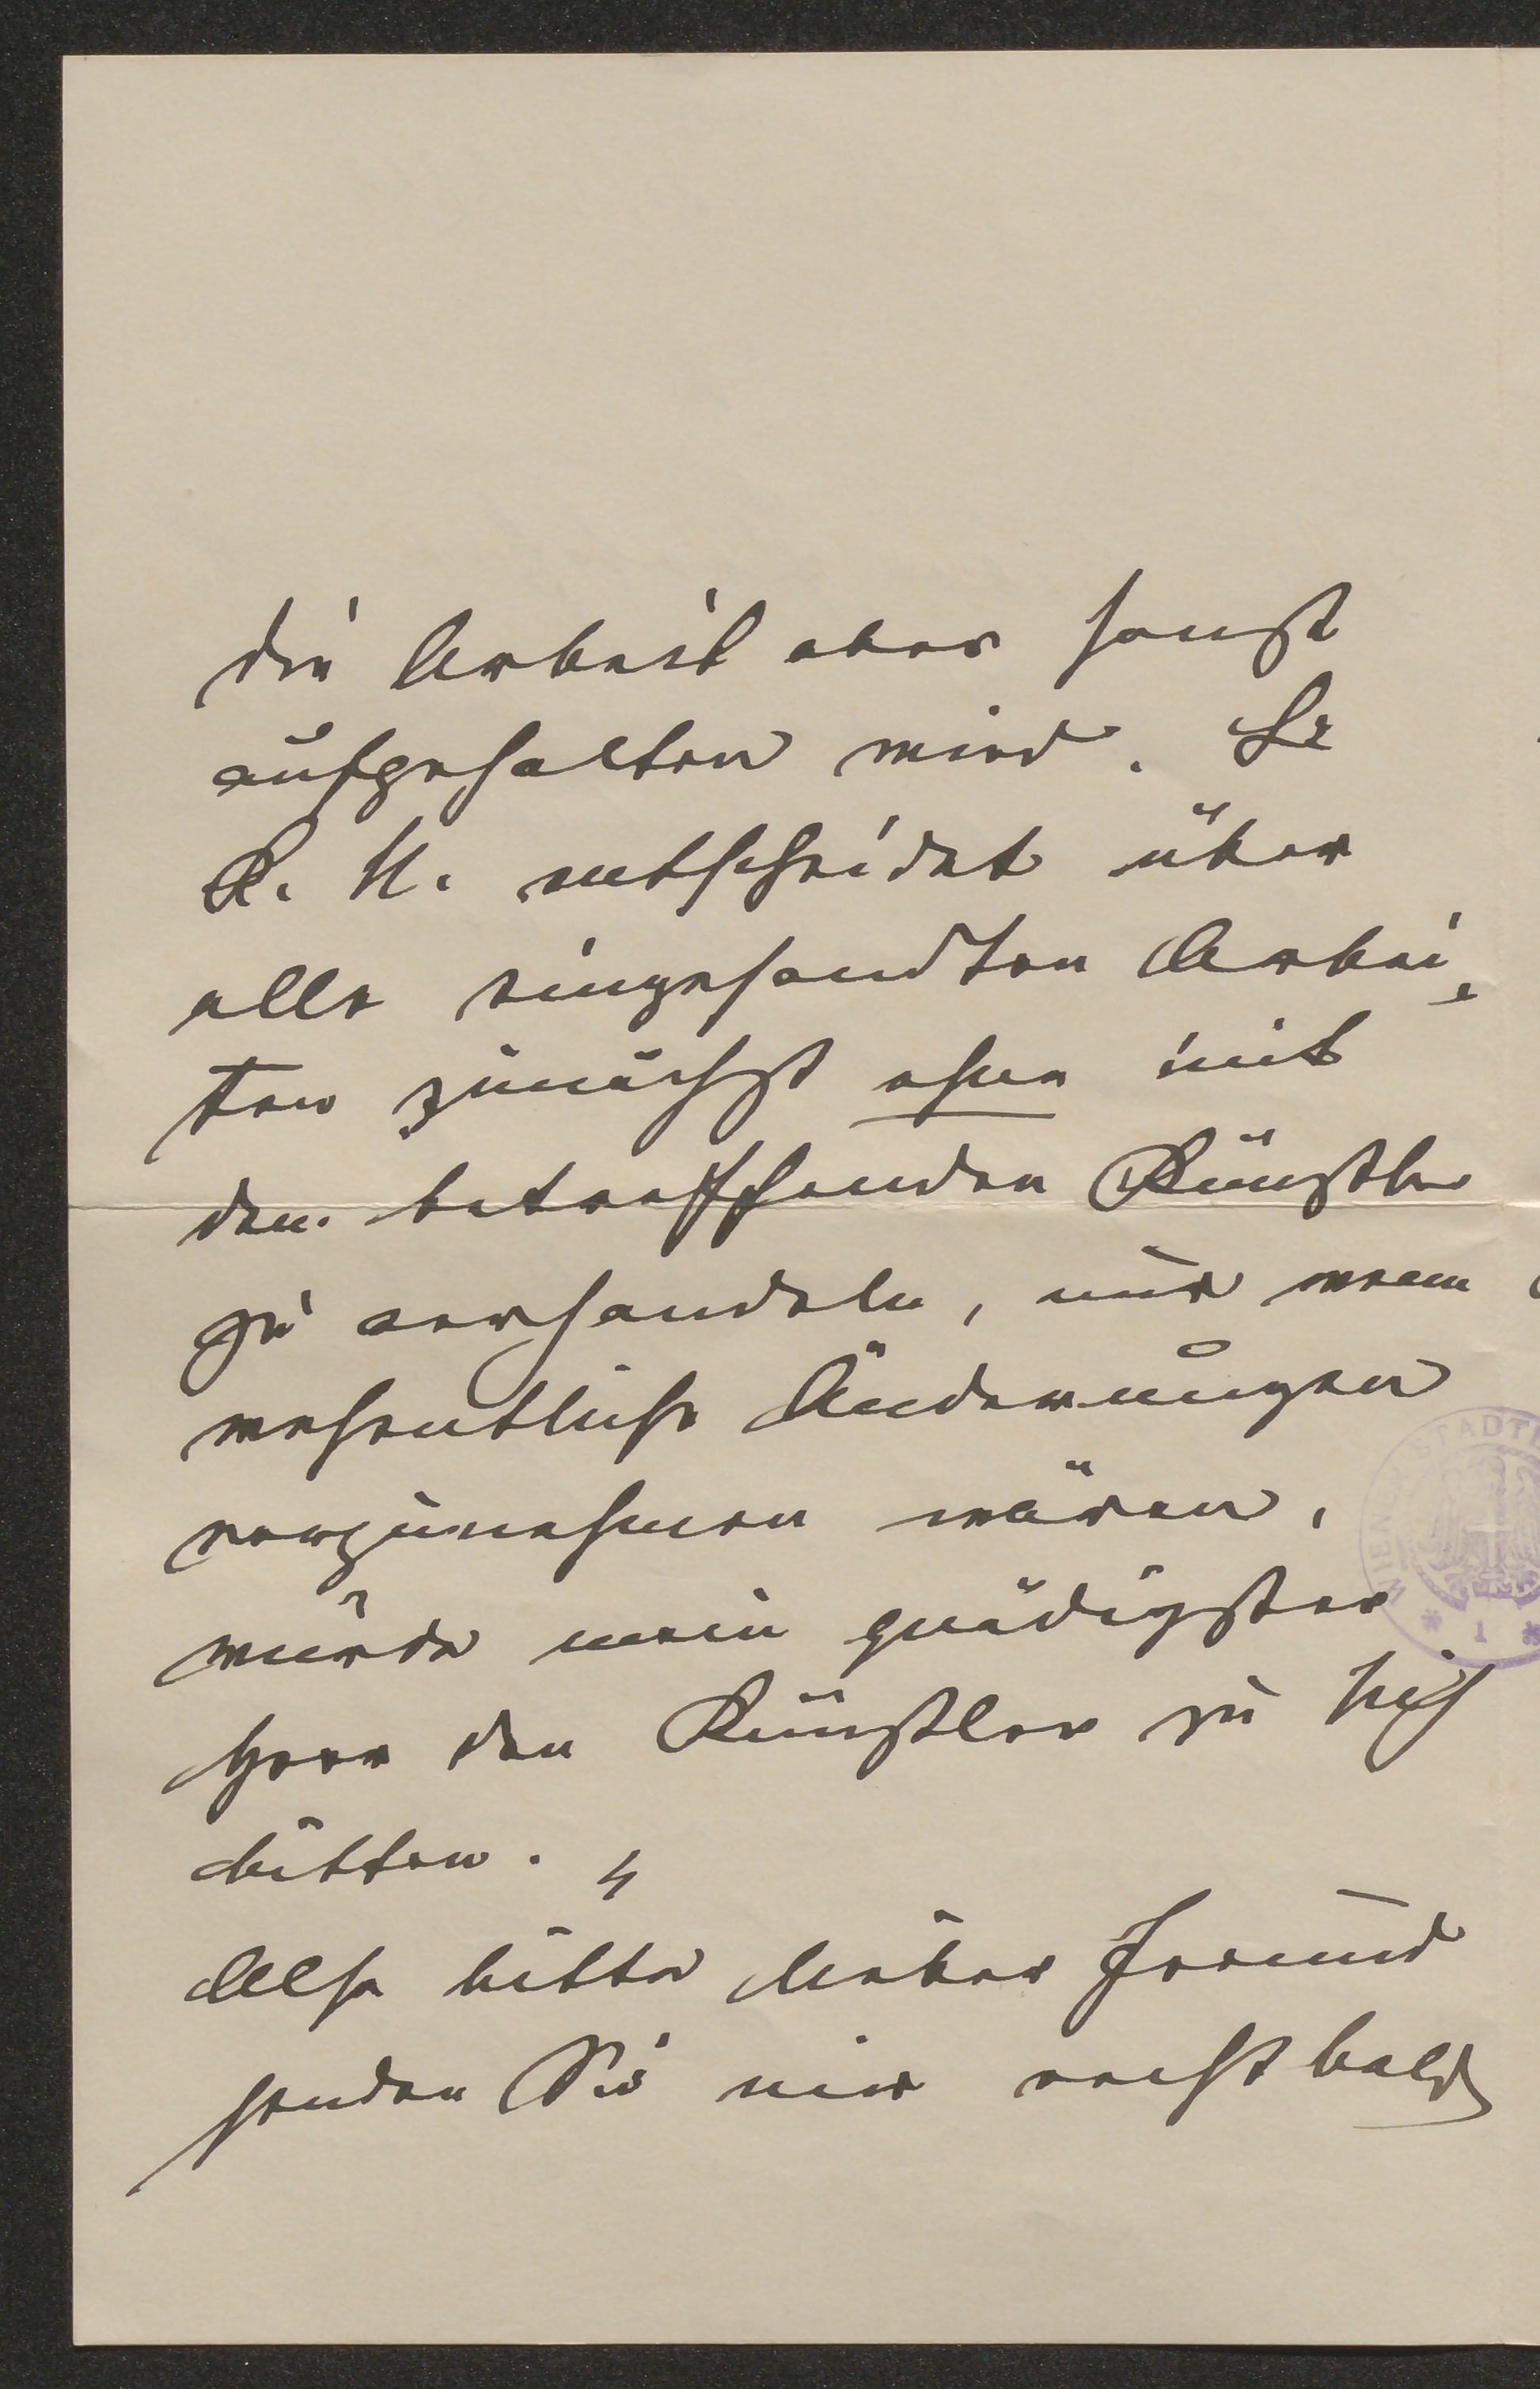 die Arbeit aber sonst
aufgehalten wird. Se
K. H. entscheidet über
alle eingesandten Arbei-
ten zunächst ohne mit
den betreffenden Künstler
zu verhandeln, nur wenn
wesentliche Änderungen
vorzunehmen wären,
würde mein gnädigster
Herr den Künstler zu sich
bitten. "
Also bitte lieber Freund
senden Sie mir recht bald
WIENER STADT
* 1 *